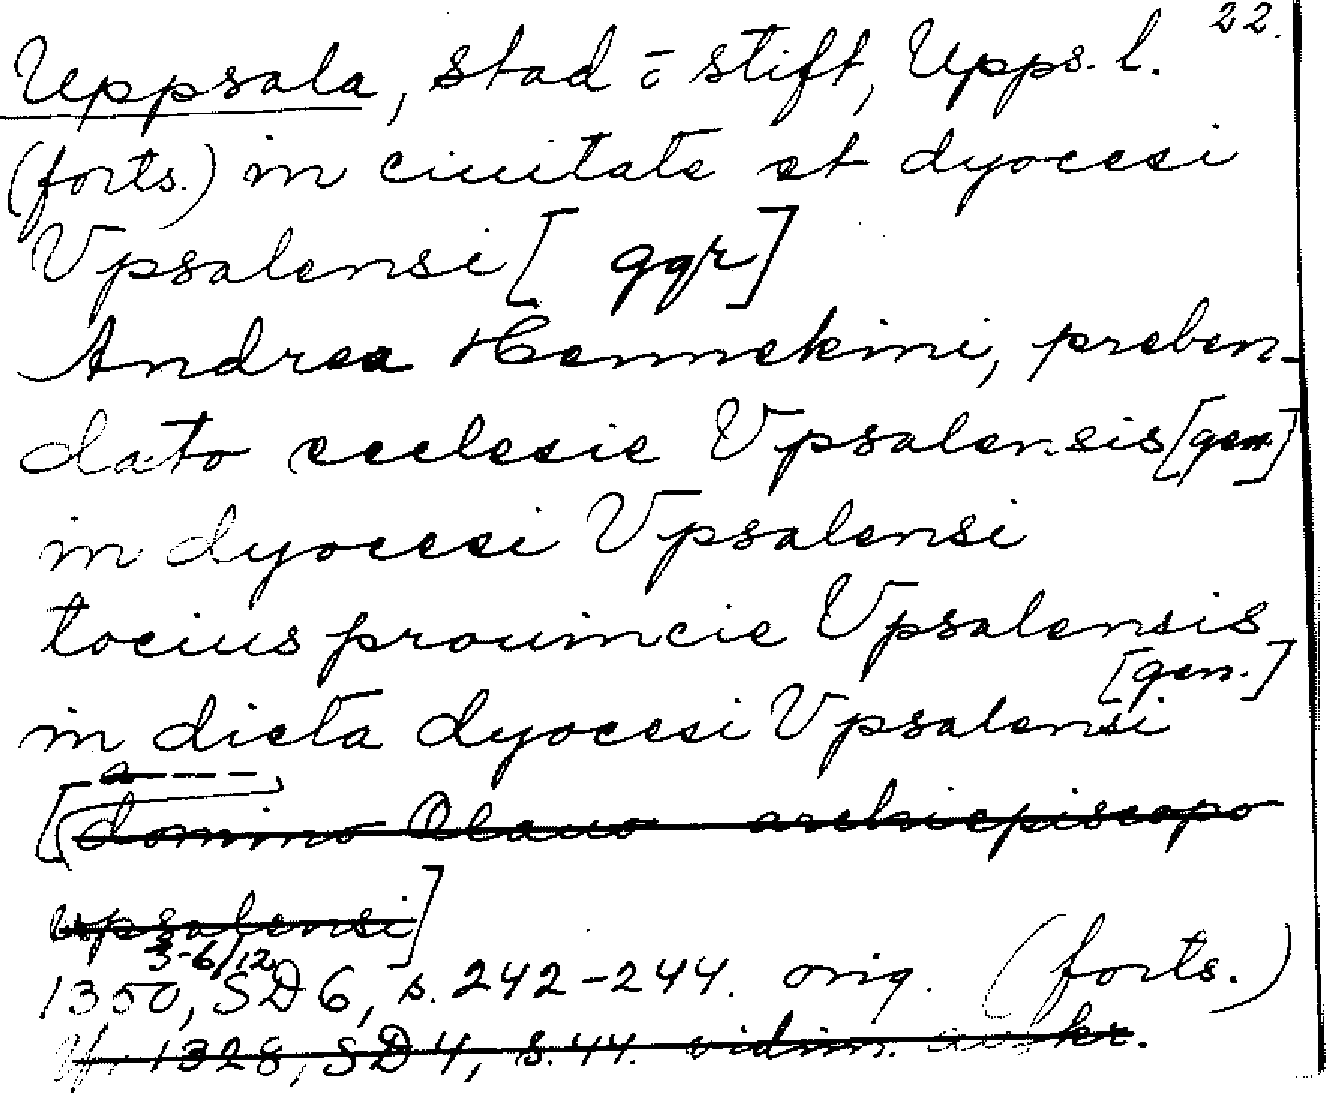 22.
Uppsala, stad ō stift, Upps. l.
(forts.) in ciuitate et dyocesi
Vpsalensi [ ggr]
Andrea Hennekini, preben-
dato ecclesie Vpsalensis [gen]
in dyocesi Vpsalensi
tocius prouincie Vpsalensis
[gen.]
in dicta dyocesi Vpsalensi
[domino Olauo archiepiscopo
upsalensi]
3-6/12
1350, SD 6, s. 242-244. orig. (forts.)
1328, SD 4, s. 44. vidim. avskr.